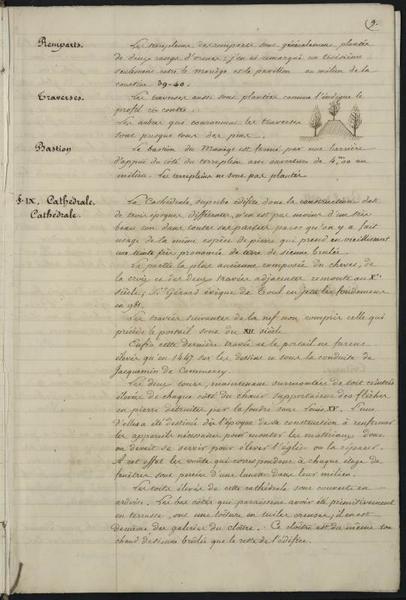 9.
Remparts.
Les terrepleins des remparts sont généralement plantés
de deux rangs d'ormes; j'en ai remarqué un troisième
seulement entre le Manège et le pavillon au milieu de la
courtine 39-40.
Traverses.
Les traverses aussi sont plantées comme l'indique le
profil ci contre.
Les arbres qui couronnent les traverses
sont presque tous des pins.
Bastion
Le bastion du Manège est fermé par une barrière
d'appui du côté du terreplein avec ouverture de 4m,00 au
milieu. Les terrepleins ne sont pas plantés.
§. IX. Cathédrale.
Cathédrale.
La Cathédrale, superbe édifice dont la construction date
de trois époques différentes, n'en est pas moins d'un très
beau ton dans toutes ses parties parce qu'on y a fait
usage de la même espèce de pierre qui prend en vieillissant
une teinte fort prononcée de terre de sienne brûlée.
La partie la plus ancienne composée du chevet, de
la croix et des deux travées adjacentes remonte au Xe
siècle; St. Gérard évêque de Toul en jeta les fondements
en 981.
Les travées suivantes de la nef non compris celle qui
précède le portail sont du XIIe siècle.
Enfin cette dernière travée et le portail ne furent
élevés qu'en 1447 sur les dessins et sous la conduite de
Jacquemin de Commercy.
Les deux tours, maintenant surmontées de toits
élevés de chaque côté du chœur supportaient des flèches
en pierre détruites par la foudre sous Louis XV. L'une
d'elles a été destinée dès l'époque de sa construction à renfermer
les appareils nécessaires pour monter les matériaux dont
on devait se servir pour élever l'église ou la réparer.
A cet effet les voûtes qui correspondent à chaque étage de
fenêtres sont percées d'une lunette dans leur milieu.
Les toits élevés de cette cathédrale sont couverts en
ardoise. Les bas côtés qui paraissent avoir été primitivement
en terrasse, ont une toiture en tuiles creuses; il en est
de même des galeries du cloître. Ce cloître est du même ton
chaud de sienne brûlée que le reste de l'édifice.